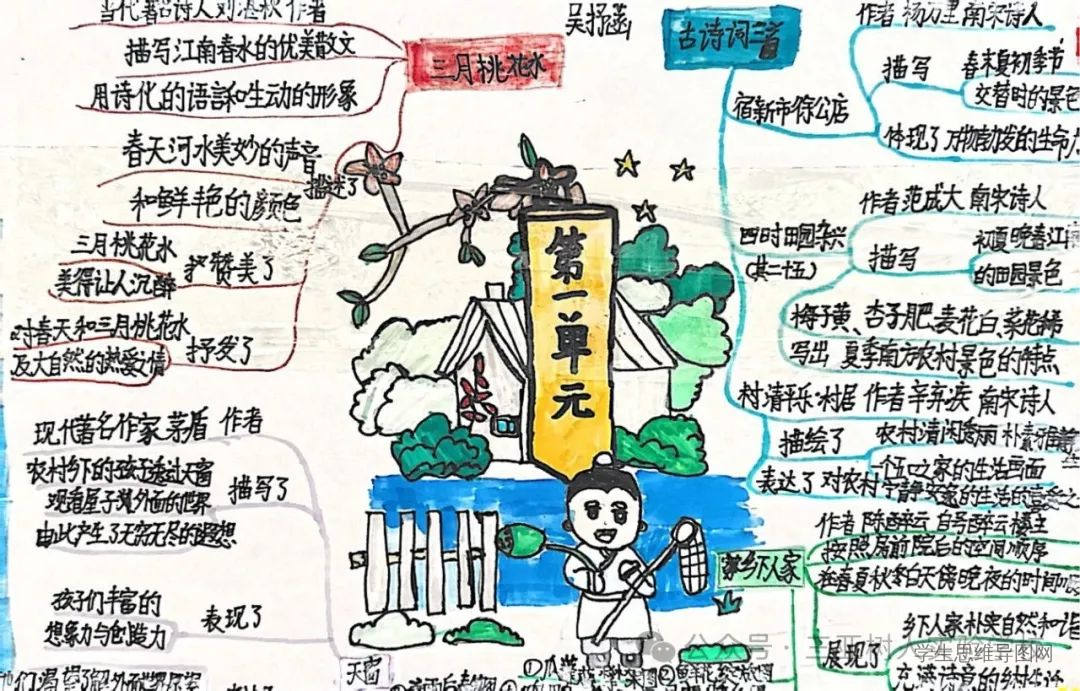 当代著名诗人刘湛秋 作者
描写江南春水的优美散文
用诗化的语言和生动的形象
三月桃花水
春天河水美妙的声音
和鲜艳的颜色
描述了
三月桃花水
美得让人沉醉
赞美了
对春天和三月桃花水
及大自然的热爱之情
抒发了
现代著名作家茅盾 作者
农村乡下的孩子透过天窗
观看屋子外面的世界
由此产生了无穷无尽的遐想
描写了
孩子们丰富的
想象力与创造力
表现了
天窗
第一单元
古诗词三首
宿新市徐公店
作者 杨万里 南宋诗人
描写
春末夏初季节
交替时的景色
体现了 万物勃发的生命
四时田园杂兴
(其二十五)
作者 范成大 南宋诗人
描写
初夏
的田园景色
梅子黄、杏子肥、麦花白、菜花稀
写出 夏季南方农村景色的特点
清平乐·村居 作者 辛弃疾 南宋诗人
描绘了
农村清闲秀丽 朴素
一个五口之家的生活画面
表达了 对农村宁静安逸的生活的喜爱之
乡下人家
作者 陈醉云 自号醉云楼主
按照房前院后的空间顺序
春夏秋冬白天傍晚夜的时间
乡下人家朴实自然和谐
展现了
充满诗意的乡村生活
公众号
学生思维导图网